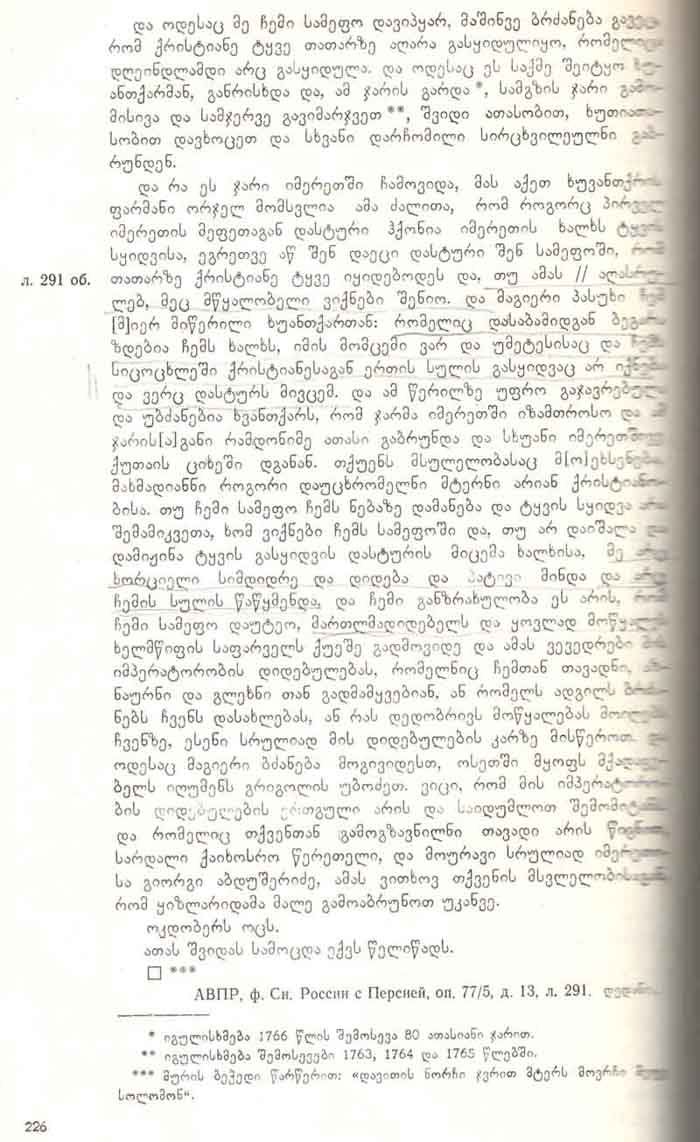 და ოდესაც მე ჩემი სამეფო დავიპყარ, მაშინვე ბრძანება
რომ ქრისტიანე ტყვე თათარზე აღარა გასყიდულიყო,
დღეინდლამდი არც გასყიდულა. და ოდესაც ეს საქმე შეიტყო
ანთქარმან, განრისხდა და, ამ ჯარის გარდა*, სამგზის ჯარი
მისივა და სამჯერვე გავიმარჯვეთ**, შვიდი ათასობით,
სობით დავხოცეთ და სხვანი დარჩომილი სირცხვილეულნი
რუნდენ.
და რა ეს ჯარი იმერეთში ჩამოვიდა, მას აქეთ
ფარმანი ორჯელ მომსვლია ამა ძალითა, რომ როგორც პირველ
იმერეთის მეფეთაგან დასტური ჰქონია იმერეთის ხალხს
სყიდვისა, ეგრეთვე აწ შენ დაეცი დასტური შენ სამეფოში, რომ
л. 291 об. თათარზე ქრისტიანე ტყვე იყიდებოდეს და, თუ ამას //
ლებ, მეც მწყალობელი ვიქნები შენიო. და მაგიერი პასუხი ჩემ
[მ]იერ მიწერილი ხუანთქართან: რომელიც დასაბამიდგან
ზდებია ჩემს ხალხს, იმის მომცემი ვარ და უმეტესისაც და
სიცოცხლეში ქრისტიანესაგან ერთის სულის გასყიდვაც არ
და ვერც დასტურს მივცემ. და ამ წერილზე უფრო
და უბძანებია ხვანთქარს, რომ ჯარმა იმერეთში იზამთროსო და
ჯარის[ა]განი რამდონიმე ათასი გაბრუნდა და სხუანი
ქუთაის ციხეში დგანან. თქუენს მსულელობასაც
მახმადიანნი როგორი დაუცხრომელნი მტერნი არიან
ბისა. თუ ჩემი სამეფო ჩემს ნებაზე დამანება და ტყვის სყიდვა
შემამიკვეთა, ხომ ვიქნები ჩემს სამეფოში და, თუ არ დაიშალა
დამიჟინა ტყვის გასყიდვის დასტურის მიცემა ხალხისა, მე
ხორციელი სიმდიდრე და დიდება და პატივი მინდა და
ჩემის სულის წაწყმენდა, და ჩემი განზრახულობა ეს არის, რომ
ჩემი სამეფო დაუტეო, მართლმადიდებელს და ყოვლად
ხელმწიფის საფარველს ქუეშე გადმოვიდე და ამას ვევედრები
იმპერატორობის დიდებულებას, რომელნიც ჩემთან თავადნი,
ნაურნი და გლეხნი თან გადმამყვებიან, ან რომელს ადგილს
ნებს ჩვენს დასახლებას, ან რას დედობრივს მოწყალებას
ჩვენზე, ესენი სრულიად მის დიდებულების კარზე მისწეროთ.
ოდესაც მაგიერი ბძანება მოგივიდესთ, ოსეთში მყოფს
ბელს იღუმენს გრიგოლის უბოძეთ. ვიცი, რომ მის
ბის დიდებულების ერთგული არის და საიდუმლოთ
და რომელიც თქვენთან გამოგზავნილნი თავადი არის
სარდალი ქაიხოსრო წერეთელი, და მოურავი სრულიად
სა გიორგი აბდუშერიძე, ამას ვითხოვ თქვენის
რომ ყიზლარიდამა მალე გამოაბრუნოთ უკანვე.
ოკდობერს ოცს.
ათას შვიდას სამოცდა ექვს წელიწადს.
□ ***
АВПР, ф. Сн. России с Персией, оп. 77/5, д. 13, л. 291.
* იგულისხმება 1766 წლის შემოსევა 80 ათასიანი ჯარით.
** იგულისხმება შემოსევები 1763, 1764 და 1765 წლებში.
*** მურის ბეჭედი წარწერით: «დავითის ნორჩი ჯვრით მტერს მოვრჩი
სოლომონ“.
226